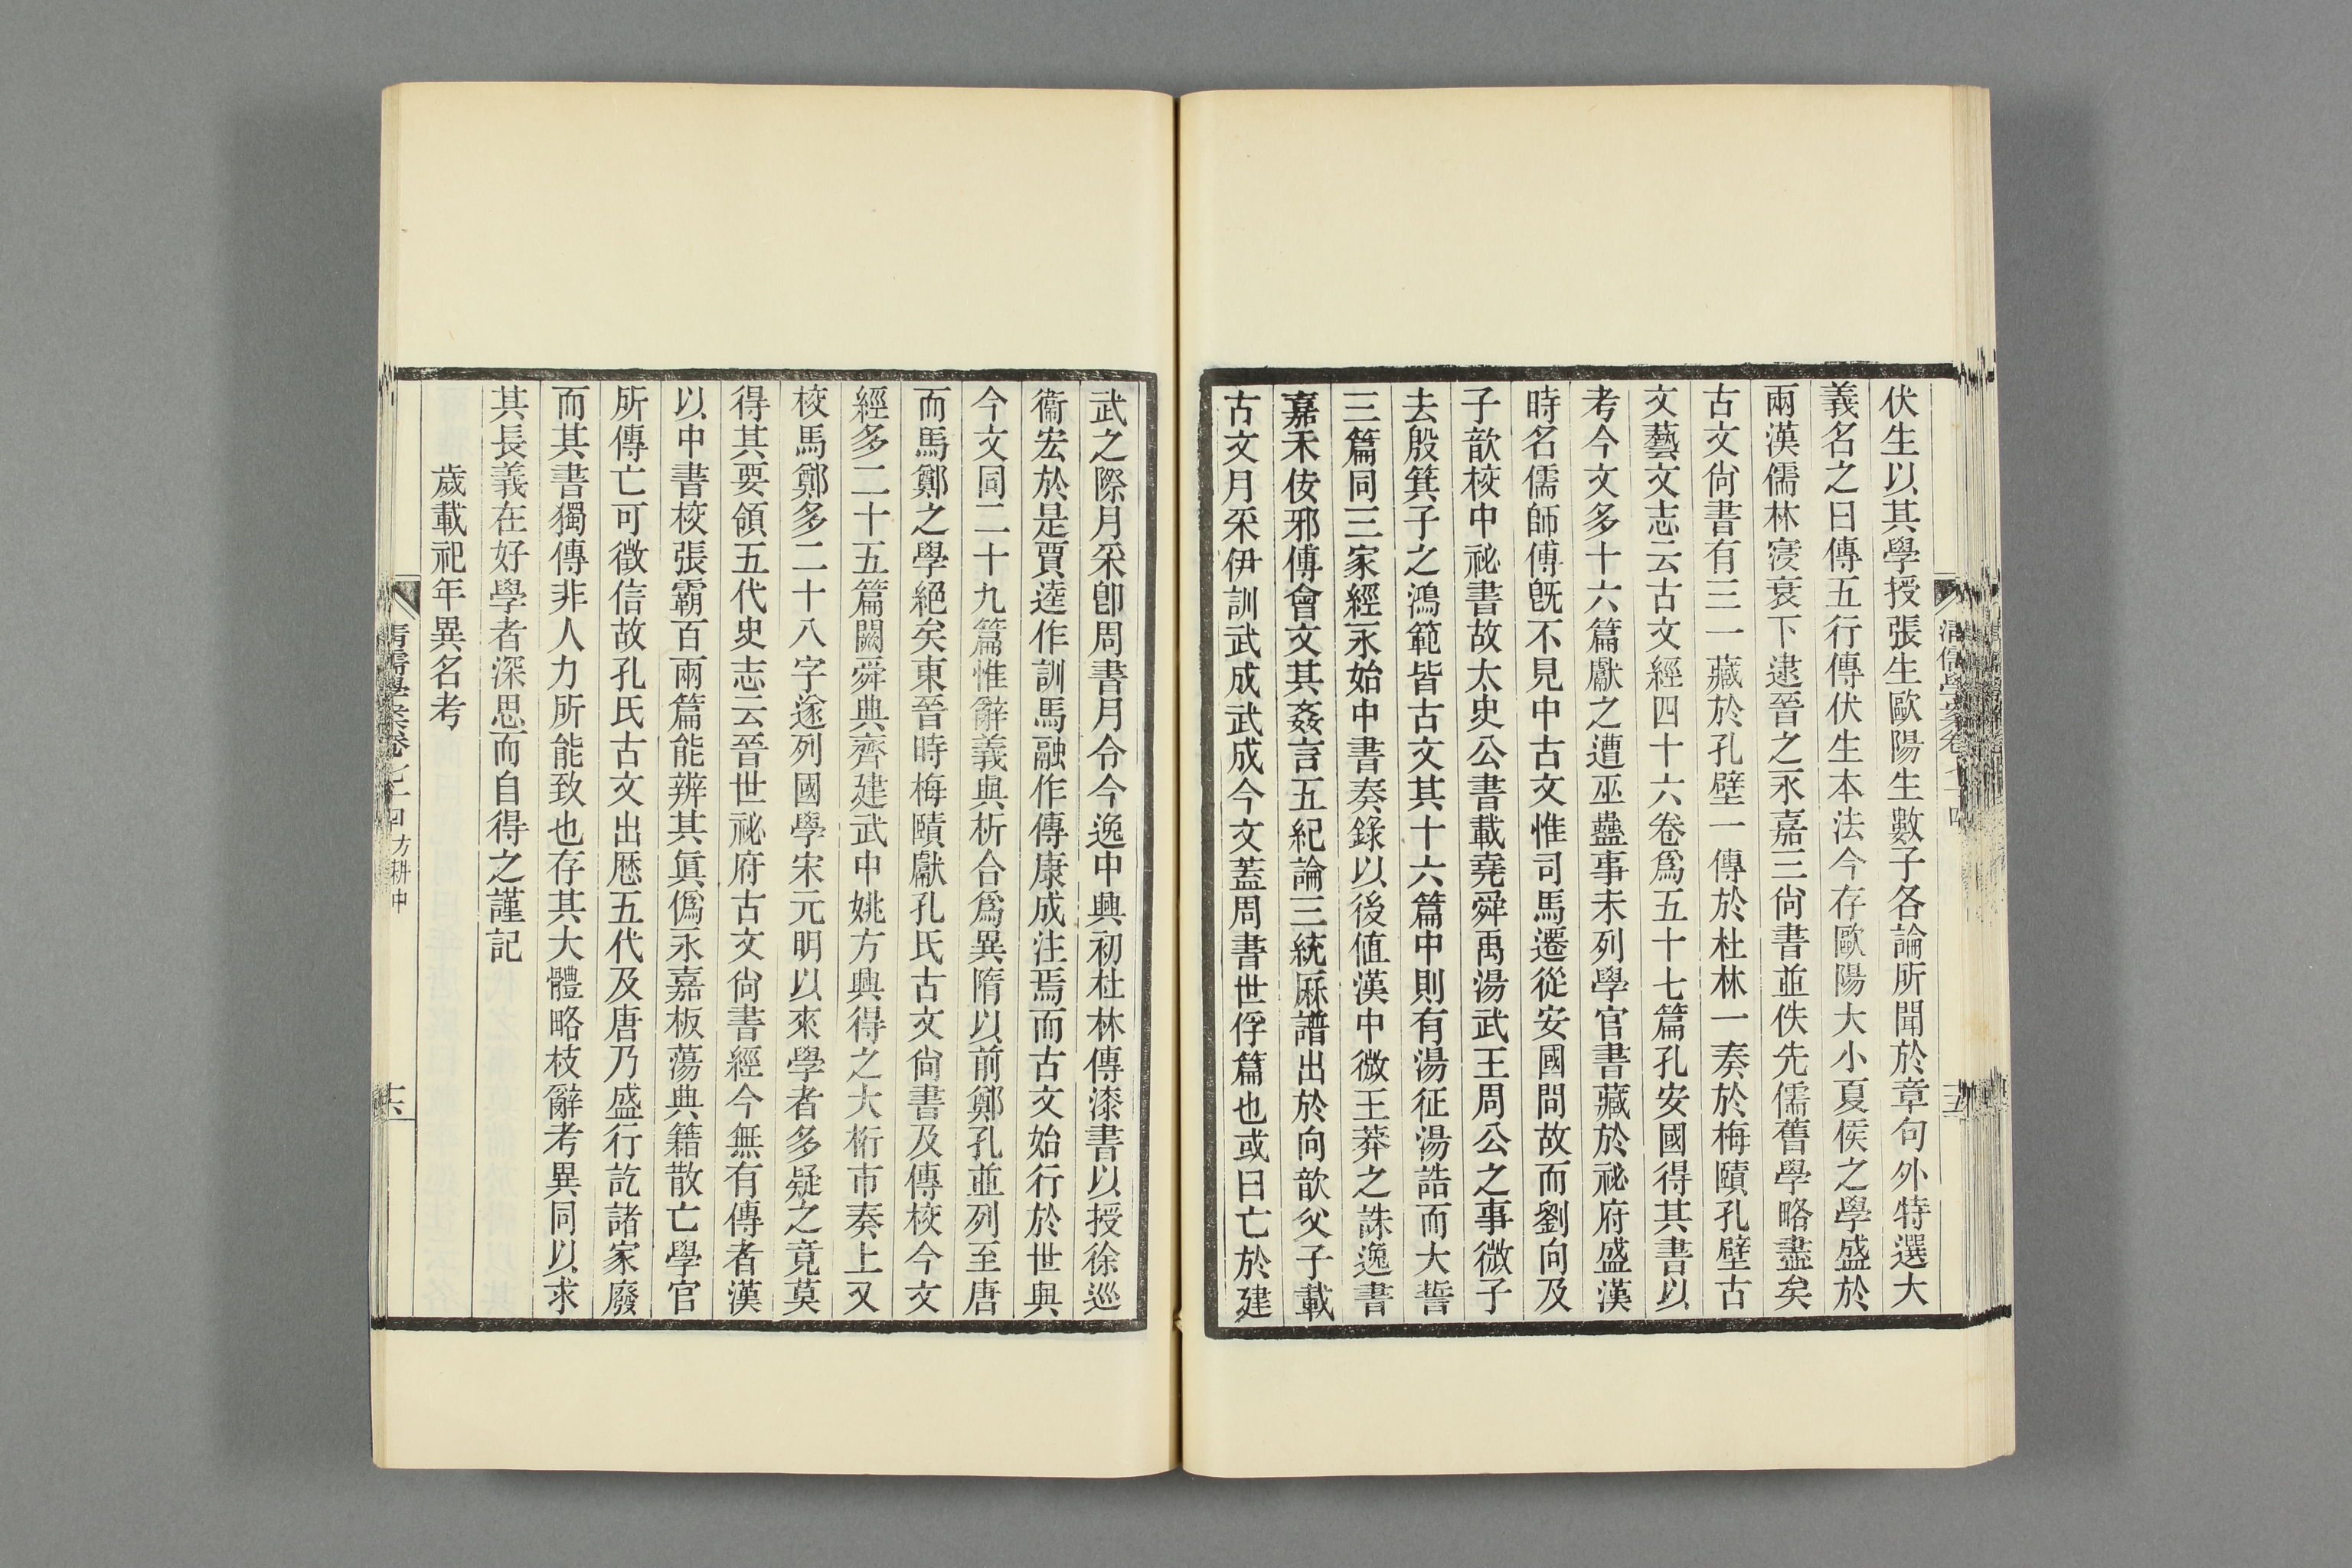 伏生以其學授張生歐陽生數子各論所聞於章句外特選大
義名之曰傳五行傳伏生本法今存歐陽大小夏侯之學盛於
兩漢儒林寖衰下逮晉之永嘉三尙書並佚先儒舊學略盡矣
古文尙書有三一藏於孔壁一傳於杜林一奏於梅賾孔壁古
文藝文志云古文經四十六卷爲五十七篇孔安國得其書以
考今文多十六篇獻之遭巫蠱事未列學官書藏於祕府盛漢
時名儒師傅旣不見中古文惟司馬遷從安國問故而劉向及
子歆校中祕書故太史公書載堯舜禹湯武王周公之事微子
去殷箕子之鴻範皆古文其十六篇中則有湯征湯誥而大誓
三篇同三家經永始中書奏錄以後値漢中微王莽之誅逸書
嘉禾侫邪傅會文其姦言五紀論三統厤譜出於向歆父子載
古文月采伊訓武成武成今文蓋周書世俘篇也或曰亡於建
武之際月采卽周書月令今逸中興初杜林傳漆書以授徐巡
衞宏於是賈逵作訓馬融作傳康成注焉而古文始行於世與
今文同二十九篇惟辭義與析合爲異隋以前鄭孔並列至唐
而馬鄭之學絕矣東晉時梅賾獻孔氏古文尙書及傳校今文
經多二十五篇闕舜典齊建武中姚方興得之大桁市奏上又
校馬鄭多二十八字遂列國學宋元明以來學者多疑之竟莫
得其要領五代史志云晉世祕府古文尙書經今無有傳者漢
以中書校張霸百兩篇能辨其眞僞永嘉板蕩典籍散亡學官
所傳亡可徵信故孔氏古文出厯五代及唐乃盛行訖諸家廢
而其書獨傳非人力所能致也存其大體略枝辭考異同以求
其長義在好學者深思而自得之謹記
歲載祀年異名考
清儒學案卷七十四 方耕中